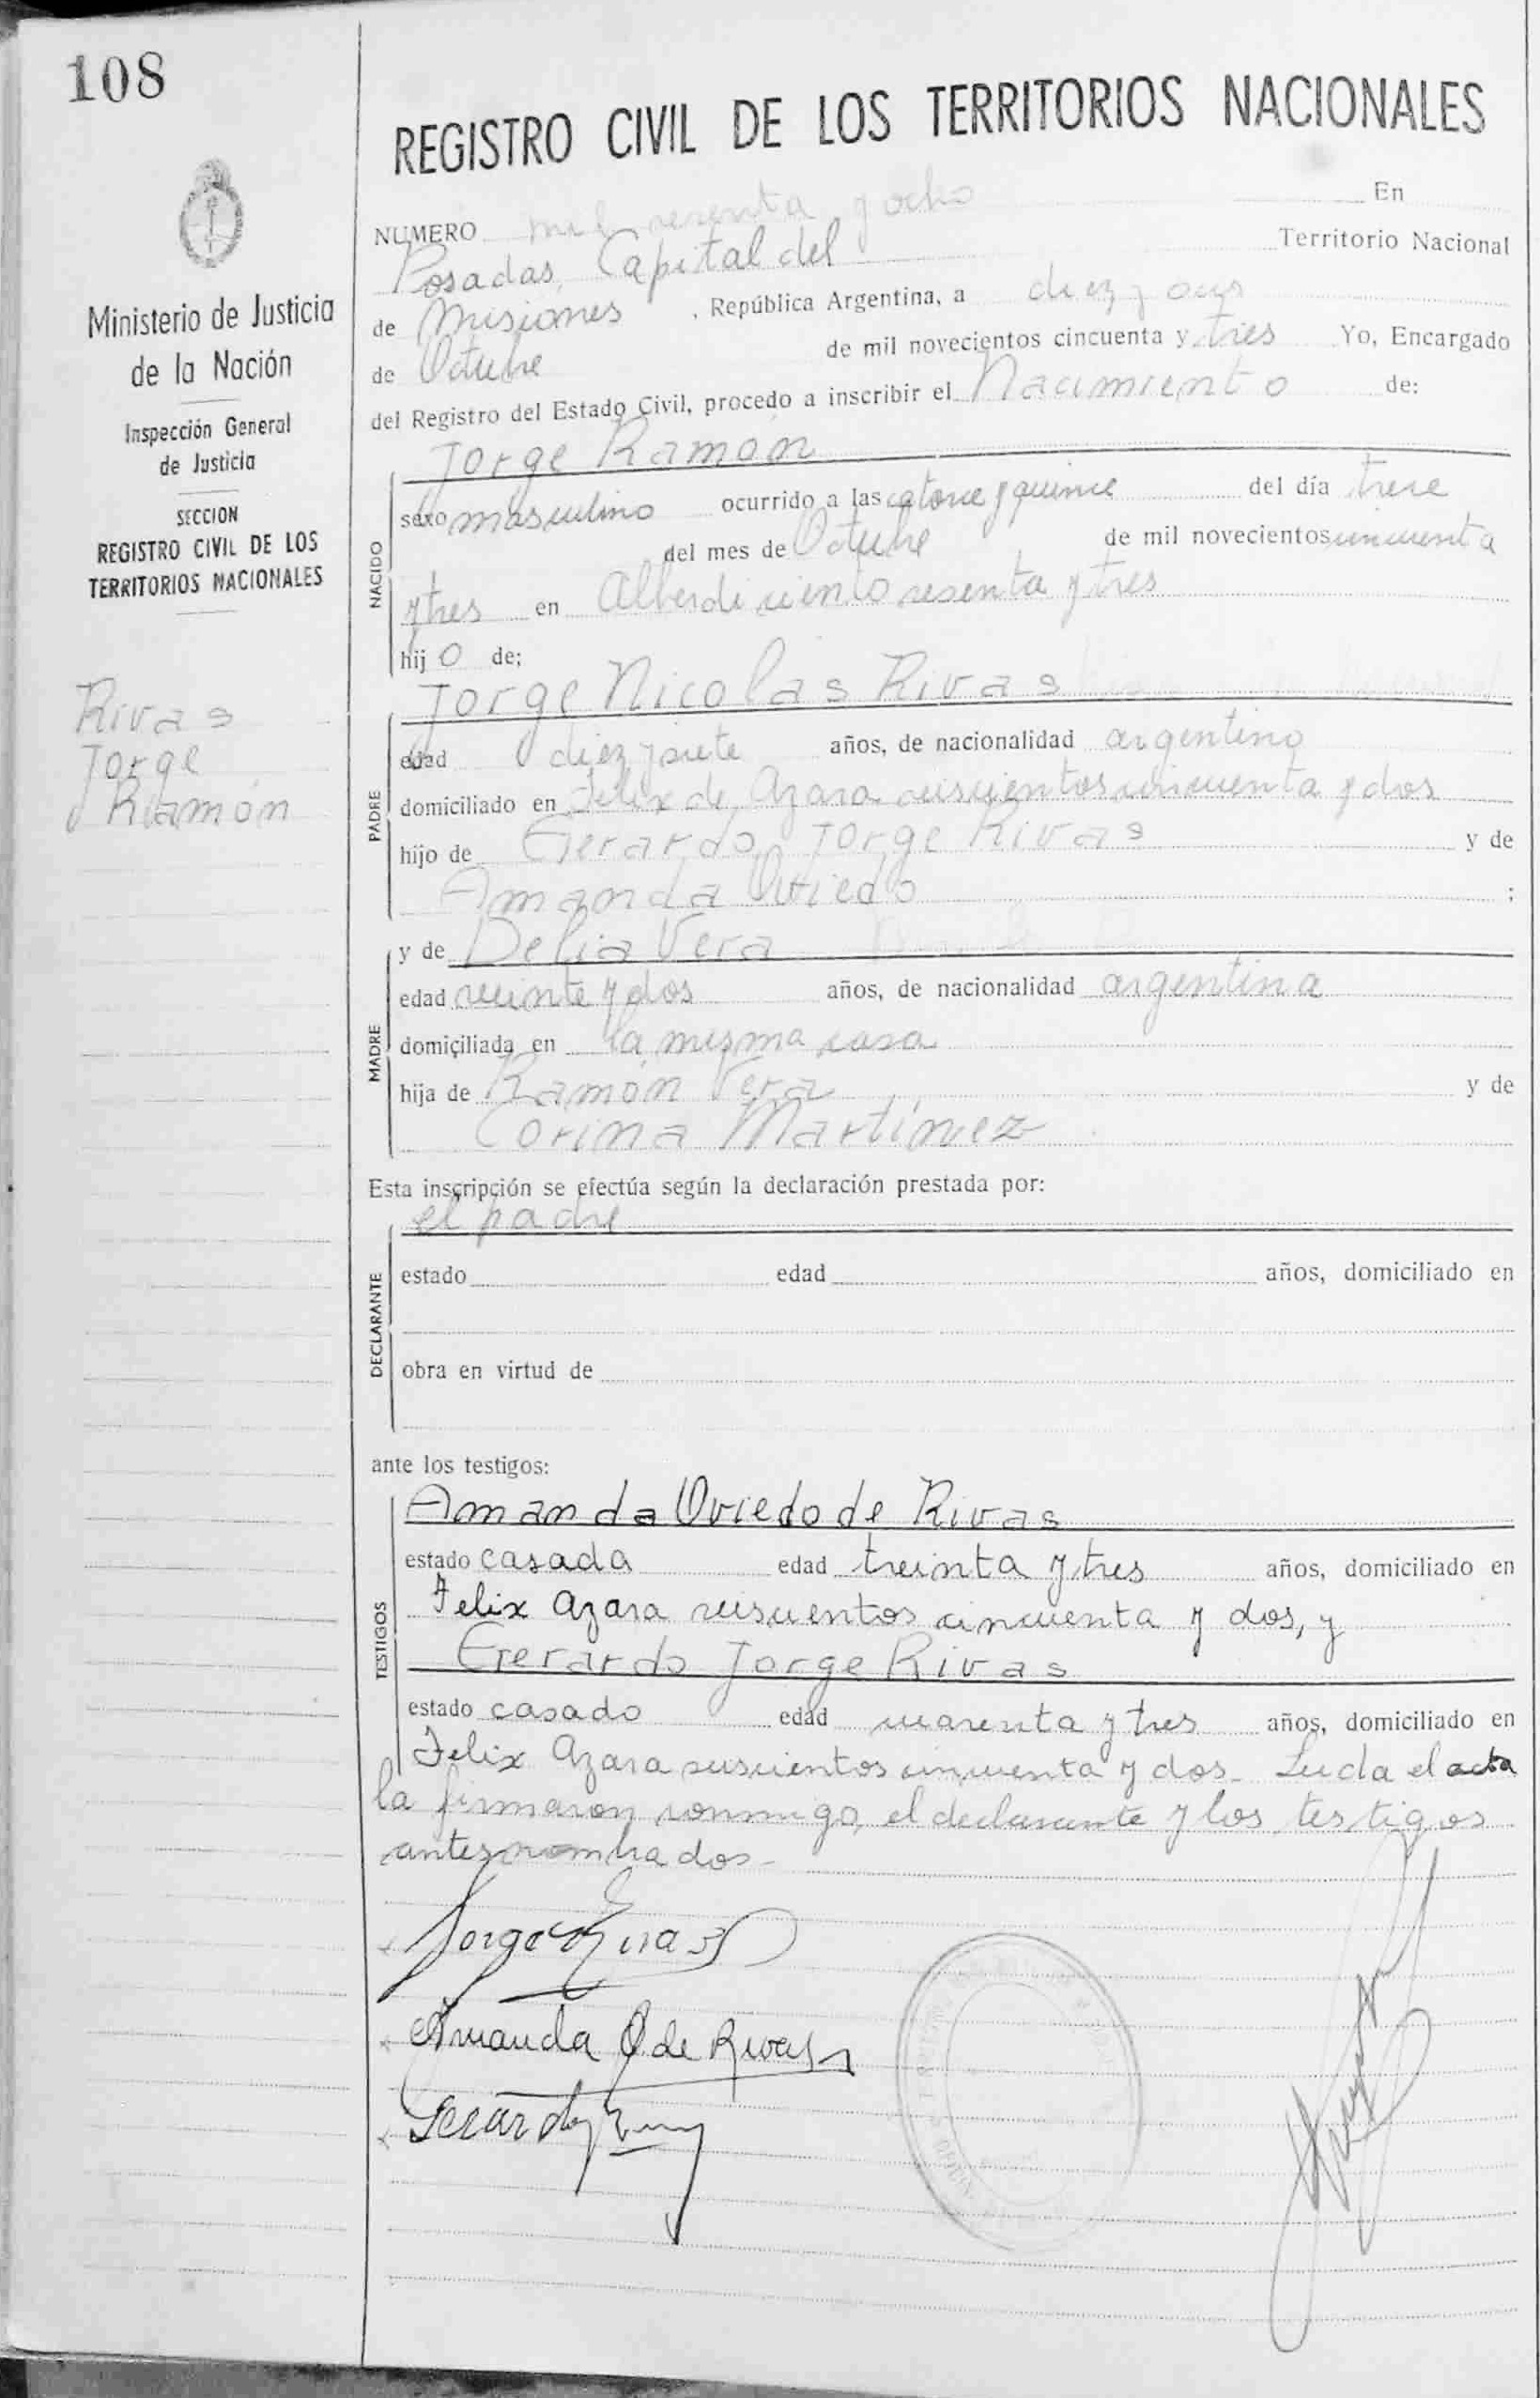 108
REGISTRO CIVIL DE LOS TERRITORIOS NACIONALES
Ministerio de Justicia
de la Nación
Inspección General
de Justicia
SECCION
REGISTRO CIVIL DE LOS
TERRITORIOS NACIONALES
Rivas
Jorge
Ramón
NUMERO mil sesenta y ocho En
Posadas, Capital del Territorio Nacional
de Misiones, República Argentina, a diez y seis
de Octubre de mil novecientos cincuenta y tres Yo, Encargado
del Registro del Estado Civil, procedo a inscribir el Nacimiento de:
NACIDO
Jorge Ramón
sexo masculino ocurrido a las catorce y quince del día trece
del mes de Octubre de mil novecientos cincuenta
y tres en Alberdi ciento sesenta y tres
hijo de;
PADRE
Jorge Nicolas Rivas
edad diez y siete años, de nacionalidad argentino
domiciliado en Felix de Azara seiscientos cincuenta y dos
hijo de Gerardo Jorge Rivas y de
Amanda Oviedo ;
MADRE
y de Delia Vera
edad veinte y dos años, de nacionalidad argentina
domiciliada en la misma casa
hija de Ramón Vera y de
Corina Martínez
Esta inscripción se efectúa según la declaración prestada por:
DECLARANTE
el padre
estado edad años, domiciliado en
obra en virtud de
ante los testigos:
TESTIGOS
Amanda Oviedo de Rivas
estado casada edad treinta y tres años, domiciliado en
Felix Azara seiscientos cincuenta y dos, y
Gerardo Jorge Rivas
estado casado edad cuarenta y tres años, domiciliado en
Felix Azara seiscientos cincuenta y dos- Leida el acta
la firmaron conmigo, el declarante y los testigos
antes nombrados-
Jorge Rivas
Amanda O de Rivas
Gerardo